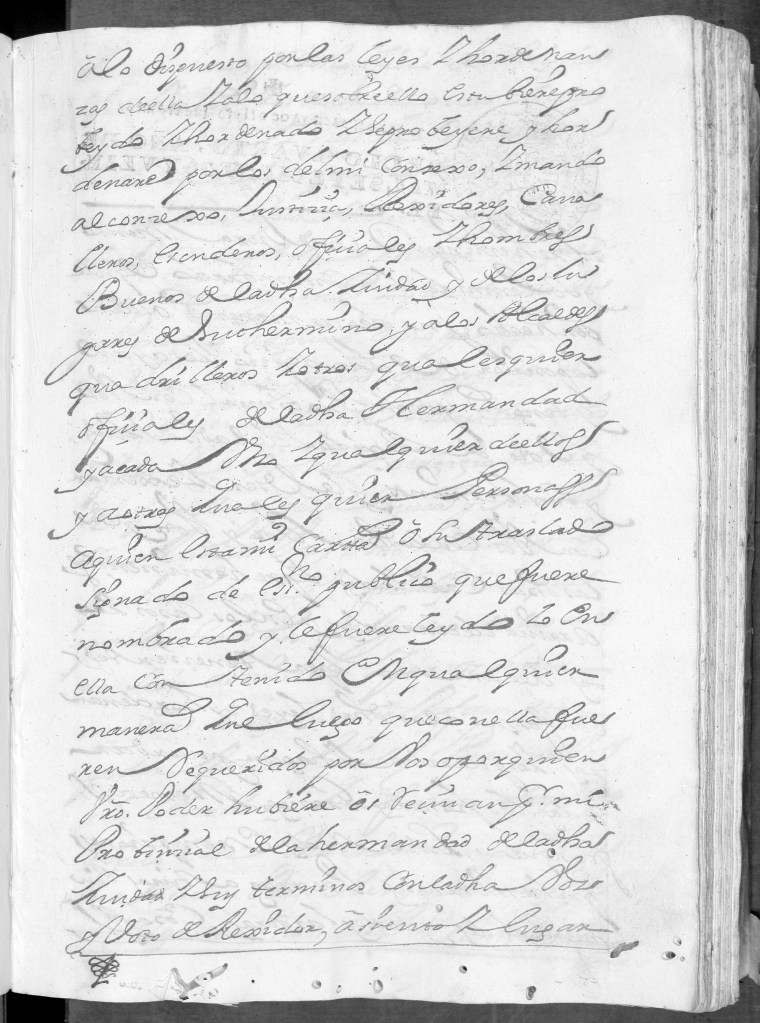 âlo dispuesto por las leyes Y hordenan
zas della Y alo que sobre ello estubiere pro
beydo Y hordenado Y se probeyere y hor
denare por los del mi Consexo, Y mando
al conzexo, Justizia, Rexidores, Cava
lleros, escuderos, offiziales Y hombres
Buenos de la dha Ziudad y de los lu
gares de su thermino, y a los Alcaldes
quadrilleros Y otros qualesquier
offiziales de la dha Hermandad
y acada Uno Y qualquier dellos
y a otras quales quier Personas
aquien esta mi Carta ô su traslado
signado de essno publico que fuere
nombrado y le fuere leydo lo En
ella Con tenido En qual quier
manera que luego que con ella fue
ren Requeridos por Vos o por quien
Vro. Poder hubiere ôs Reciuan Pr. mi
Probinzial de la hermandad de la dha
Ziudad Y sus terminos Con la dha Voz
y Voto de Rexidor, âsiento Y lugar